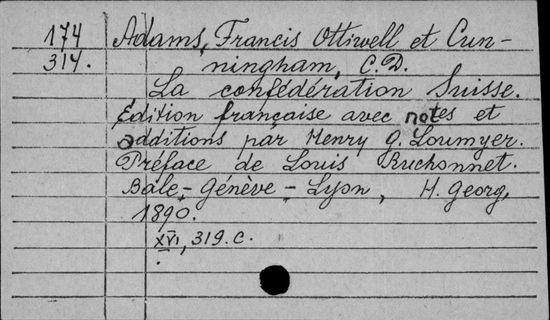 174 Adams, Francis Ottiwell et Cun-
314. ningham, C.D.
La confédération Suisse.
Edition française avec notes et
additions par Henry G. Loumyer.
Préface de Louis Ruchonnet.
Bâle - Génève - Lyon, H. Georg,
1890.
XVI, 319.c.